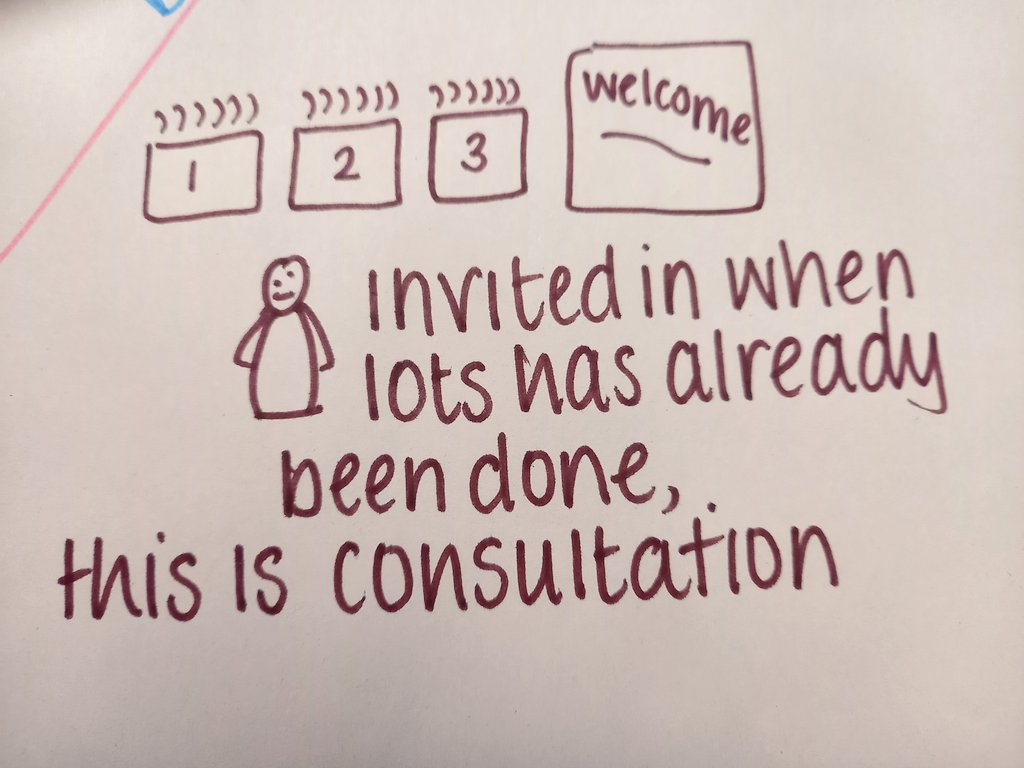 1 2 3 welcome
invited in when
lots has already
been done,
this is consultation